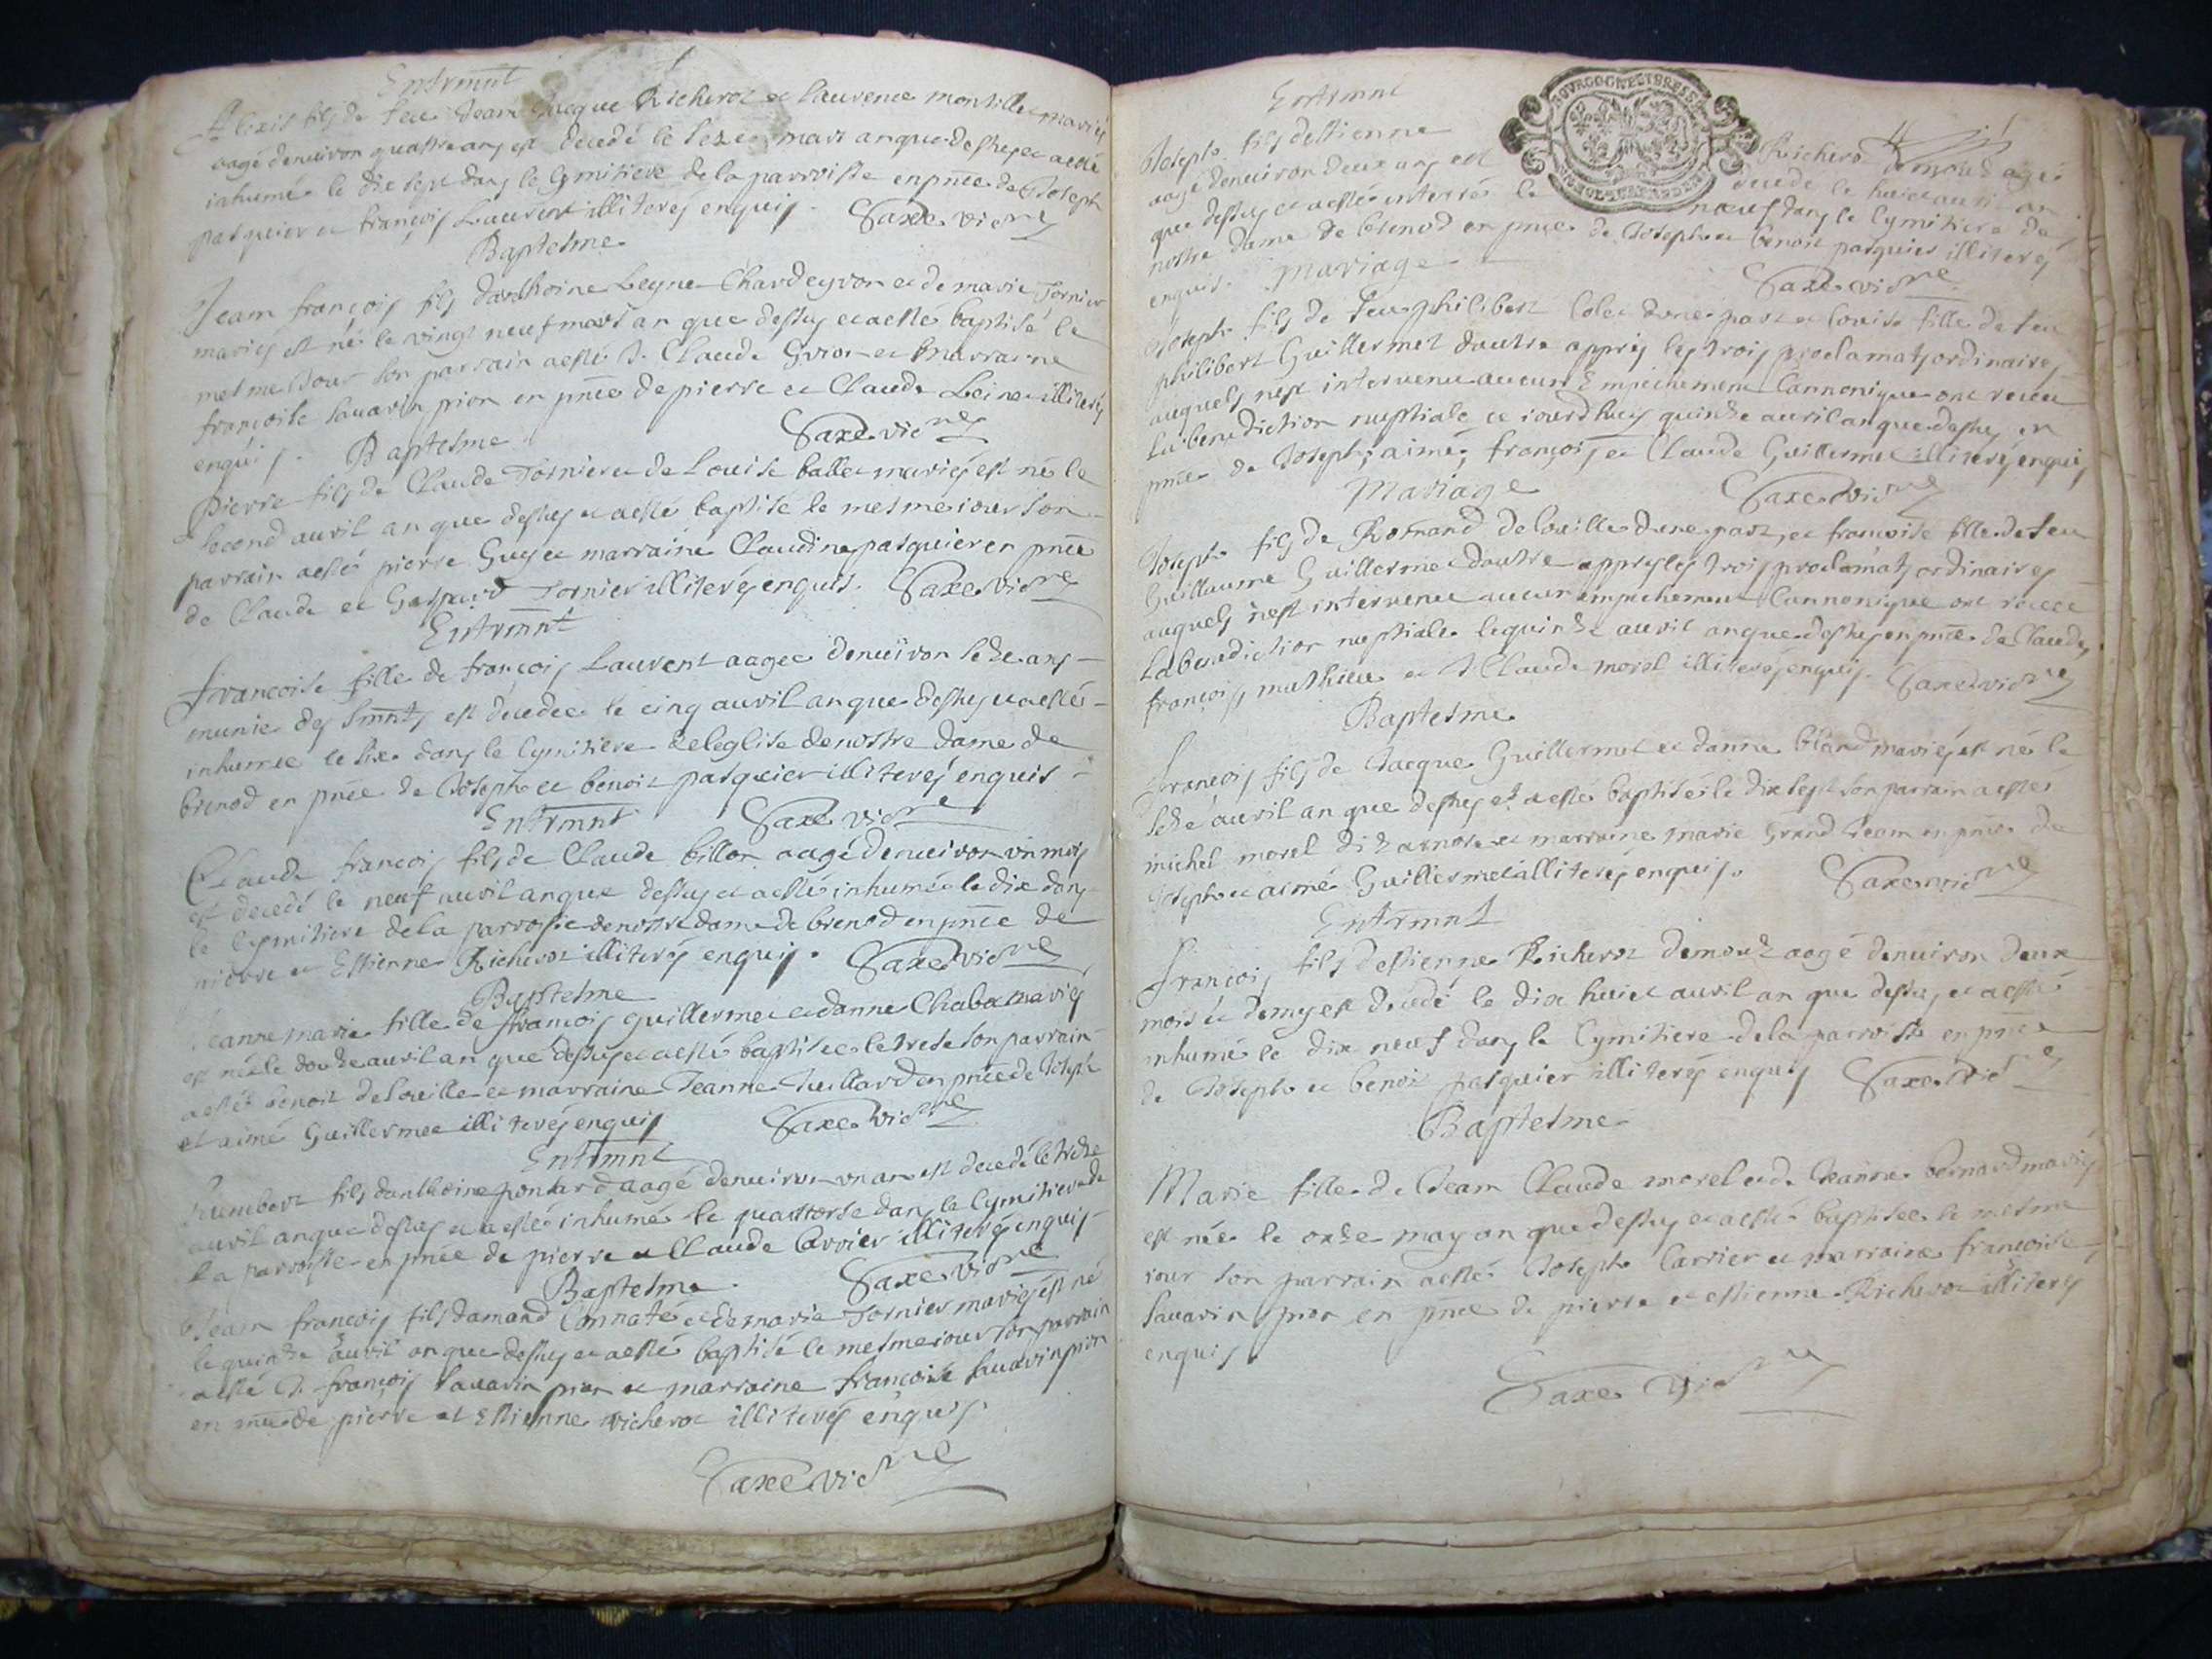 Entrmnt
Alexis fils de feu Jean Jacque Richerot et laurence montillet mariés
aagé denuiron quattre ans est decedé le seze mars an que dessus et a esté
inhumé le dix sept dans le Cymitiere de la parroisse en pnce de Joseph
pasquier et françois Laurent illiterés enquis. Saxe vicre
Baptesme
Jean françois fils danthoine Leyne Chardeyron et de marie Tornier
mariés est né le vingt neuf mars an que dessus et a esté baptisé le
mesme Jour son parrain a esté Sr. Claude Guiot et marraine
françoise sauarin pion en pnce de pierre et Claude Leine illiterés
enquis. Saxe vicre
Baptesme
Pierre fils de Claude Tornier et de Louise ballet mariés est né le
second auril an que dessus et a esté baptisé le mesme iour son
parrain a esté pierre Guy et marraine Claudine pasquier en pnce
de Claude et Gaspard Tornier illiterés enquis. Saxe vicre
Entrmnt
Francoise fille de françois Laurent aagee denuiron seze ans
munie des Smnts est decedee le cinq auril an que dessus et a esté
inhumee le six dans le Cymitiere de leglise de nostre dame de
brenod en pnce de Joseph et benoit pasquier illiterés enquis
Entrmnt Saxe vicre
Claude francois fils de Claude billon aagé denuiron un mois
est decedé le neuf auril an que dessus et a esté inhumé le dix dans
le Cymitiere de la parroisse de nostre dame de brenod en pnce de
pierre et Estienne Richerot illiterés enquis. Saxe vicre
Baptesme
Jeanne marie fille de françois guillermet et danne Chabet mariés
est née le douze auril an que dessus et a esté baptisee le treze son parrain
a esté benoit delouille et marraine Jeanne Juillard en pnce de Joseph
et aimé Guillermet illiterés enquis Saxe vicre
Entrmnt
Humbert fils danthoine ponard aagé denuiron un an est decedé le treze
auril an que dessus et a esté inhumé le quattorse dans le Cymitiere de
la parroisse en pnce de pierre et Claude Carrier illiterés enquis
Baptesme. Saxe vicre
Jean françois fils damand Connaté et de marie Tornier mariés est né
le quinze auril an que dessus et a esté baptisé le mesme iour son parrain
a esté Sr. françois sauarin pion et marraine françoise sauarin pion
en pnce de pierre et Estienne richerot illiterés enquis.
Saxe vicre
Entrmnt
Joseph fils destienne Richerot demoud agé
aagé denuiron deux ans est decedé le huict auril an
que dessus et a esté enterré le neuf dans le Cymitiere de
nostre dame de brenod en pnce de Joseph et benoit pasquier illiterés
enquis. Saxe vicre
Mariage
Joseph fils de feu philibert Colet dune part et louise fille de feu
philibert Guillermet dautre apprés les trois proclamats ordinaires
auquels nest interuenu aucun Empéchement Cannonique ont receu
La benediction nuptiale ce iourdhuy quinze auril an que dessus en
pnce de Joseph, aimé, françois et Claude Guillermet illiterés enquis
Mariage Saxe vicre
Joseph fils de Romand delouille dune part, et francoise fille de feu
Guillaume Guillermet dautre apprés les trois proclamats ordinaires
auquels nest interuenu aucun empechement Cannonique ont receu
La benediction nuptiale le quinze auril an que dessus en pnce de Claude,
françois, mathieu et J Claude morel illiterés enquis. Saxe vicre
Baptesme
François fils de Jacque Guillermet et danne bland mariés est né le
seze auril an que dessus et a esté baptisé le dix sept son parrain a esté
michel morel dit arnox et marraine marie Grand Jean en pnce de
Joseph et aimé Guillermet illiterés enquis. Saxe vicre
Entrmnt
François fils destienne Richerot demoux aagé denuiron deux
mois et demy est decedé le dix huict auril an que dessus et a esté
inhumé le dix neuf dans le Cymitiere de la parroisse en pnce
de Joseph et benoit pasquier illiterés enquis Saxe vicre
Baptesme
Marie fille de Jean Claude morel et de Jeanne bernard mariés
est née le onze may an que dessus et a esté baptisee le mesme
iour son parrain a esté Joseph Carrier et marraine françoise
sauarin pion en pnce de pierre et estienne Richerot illiterés
enquis.
Saxe vicre